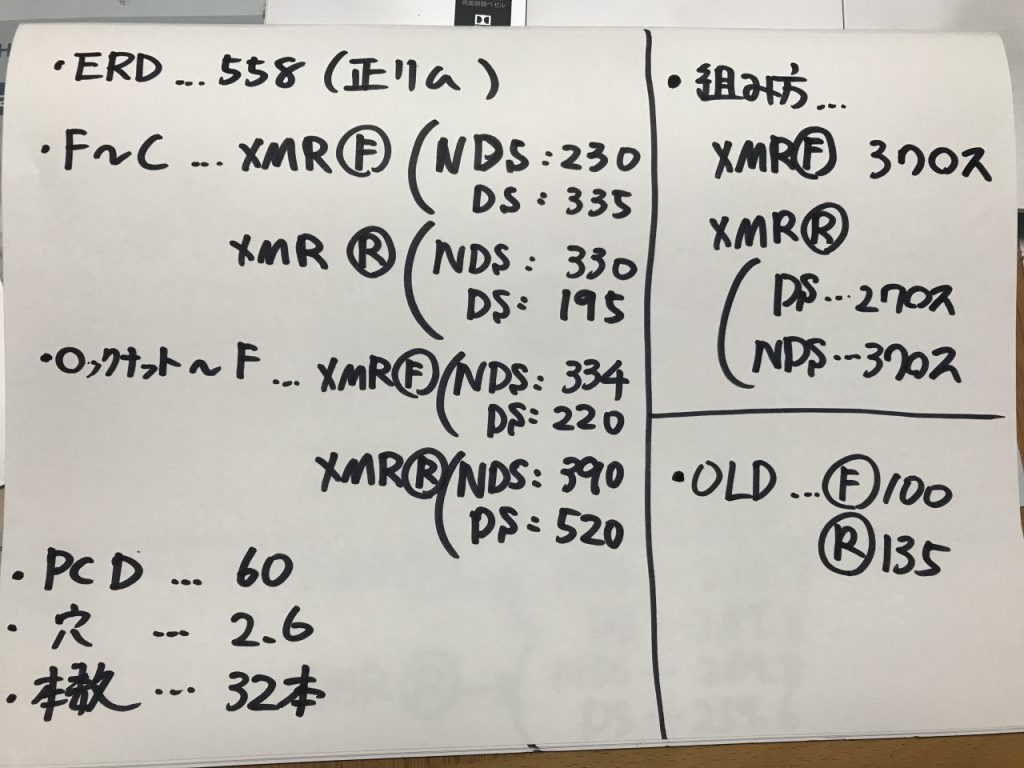 両面狭額ベゼル
・ERD … 558 (正リム)
・F〜C … XMR Ⓕ (NDS:230
DS:335
XMR Ⓡ (NDS: 330
DS: 195
・ロックナット〜F … XMRⒻ(NDS: 334
DS:220
XMRⓇ(NDS: 390
DS: 520
・PCD … 60
・穴 … 2.6
・本数 … 32本
・組み方…
XMRⒻ 3クロス
XMRⓇ
(DS…2クロス
NDS…3クロス
・OLD …Ⓕ100
Ⓡ135